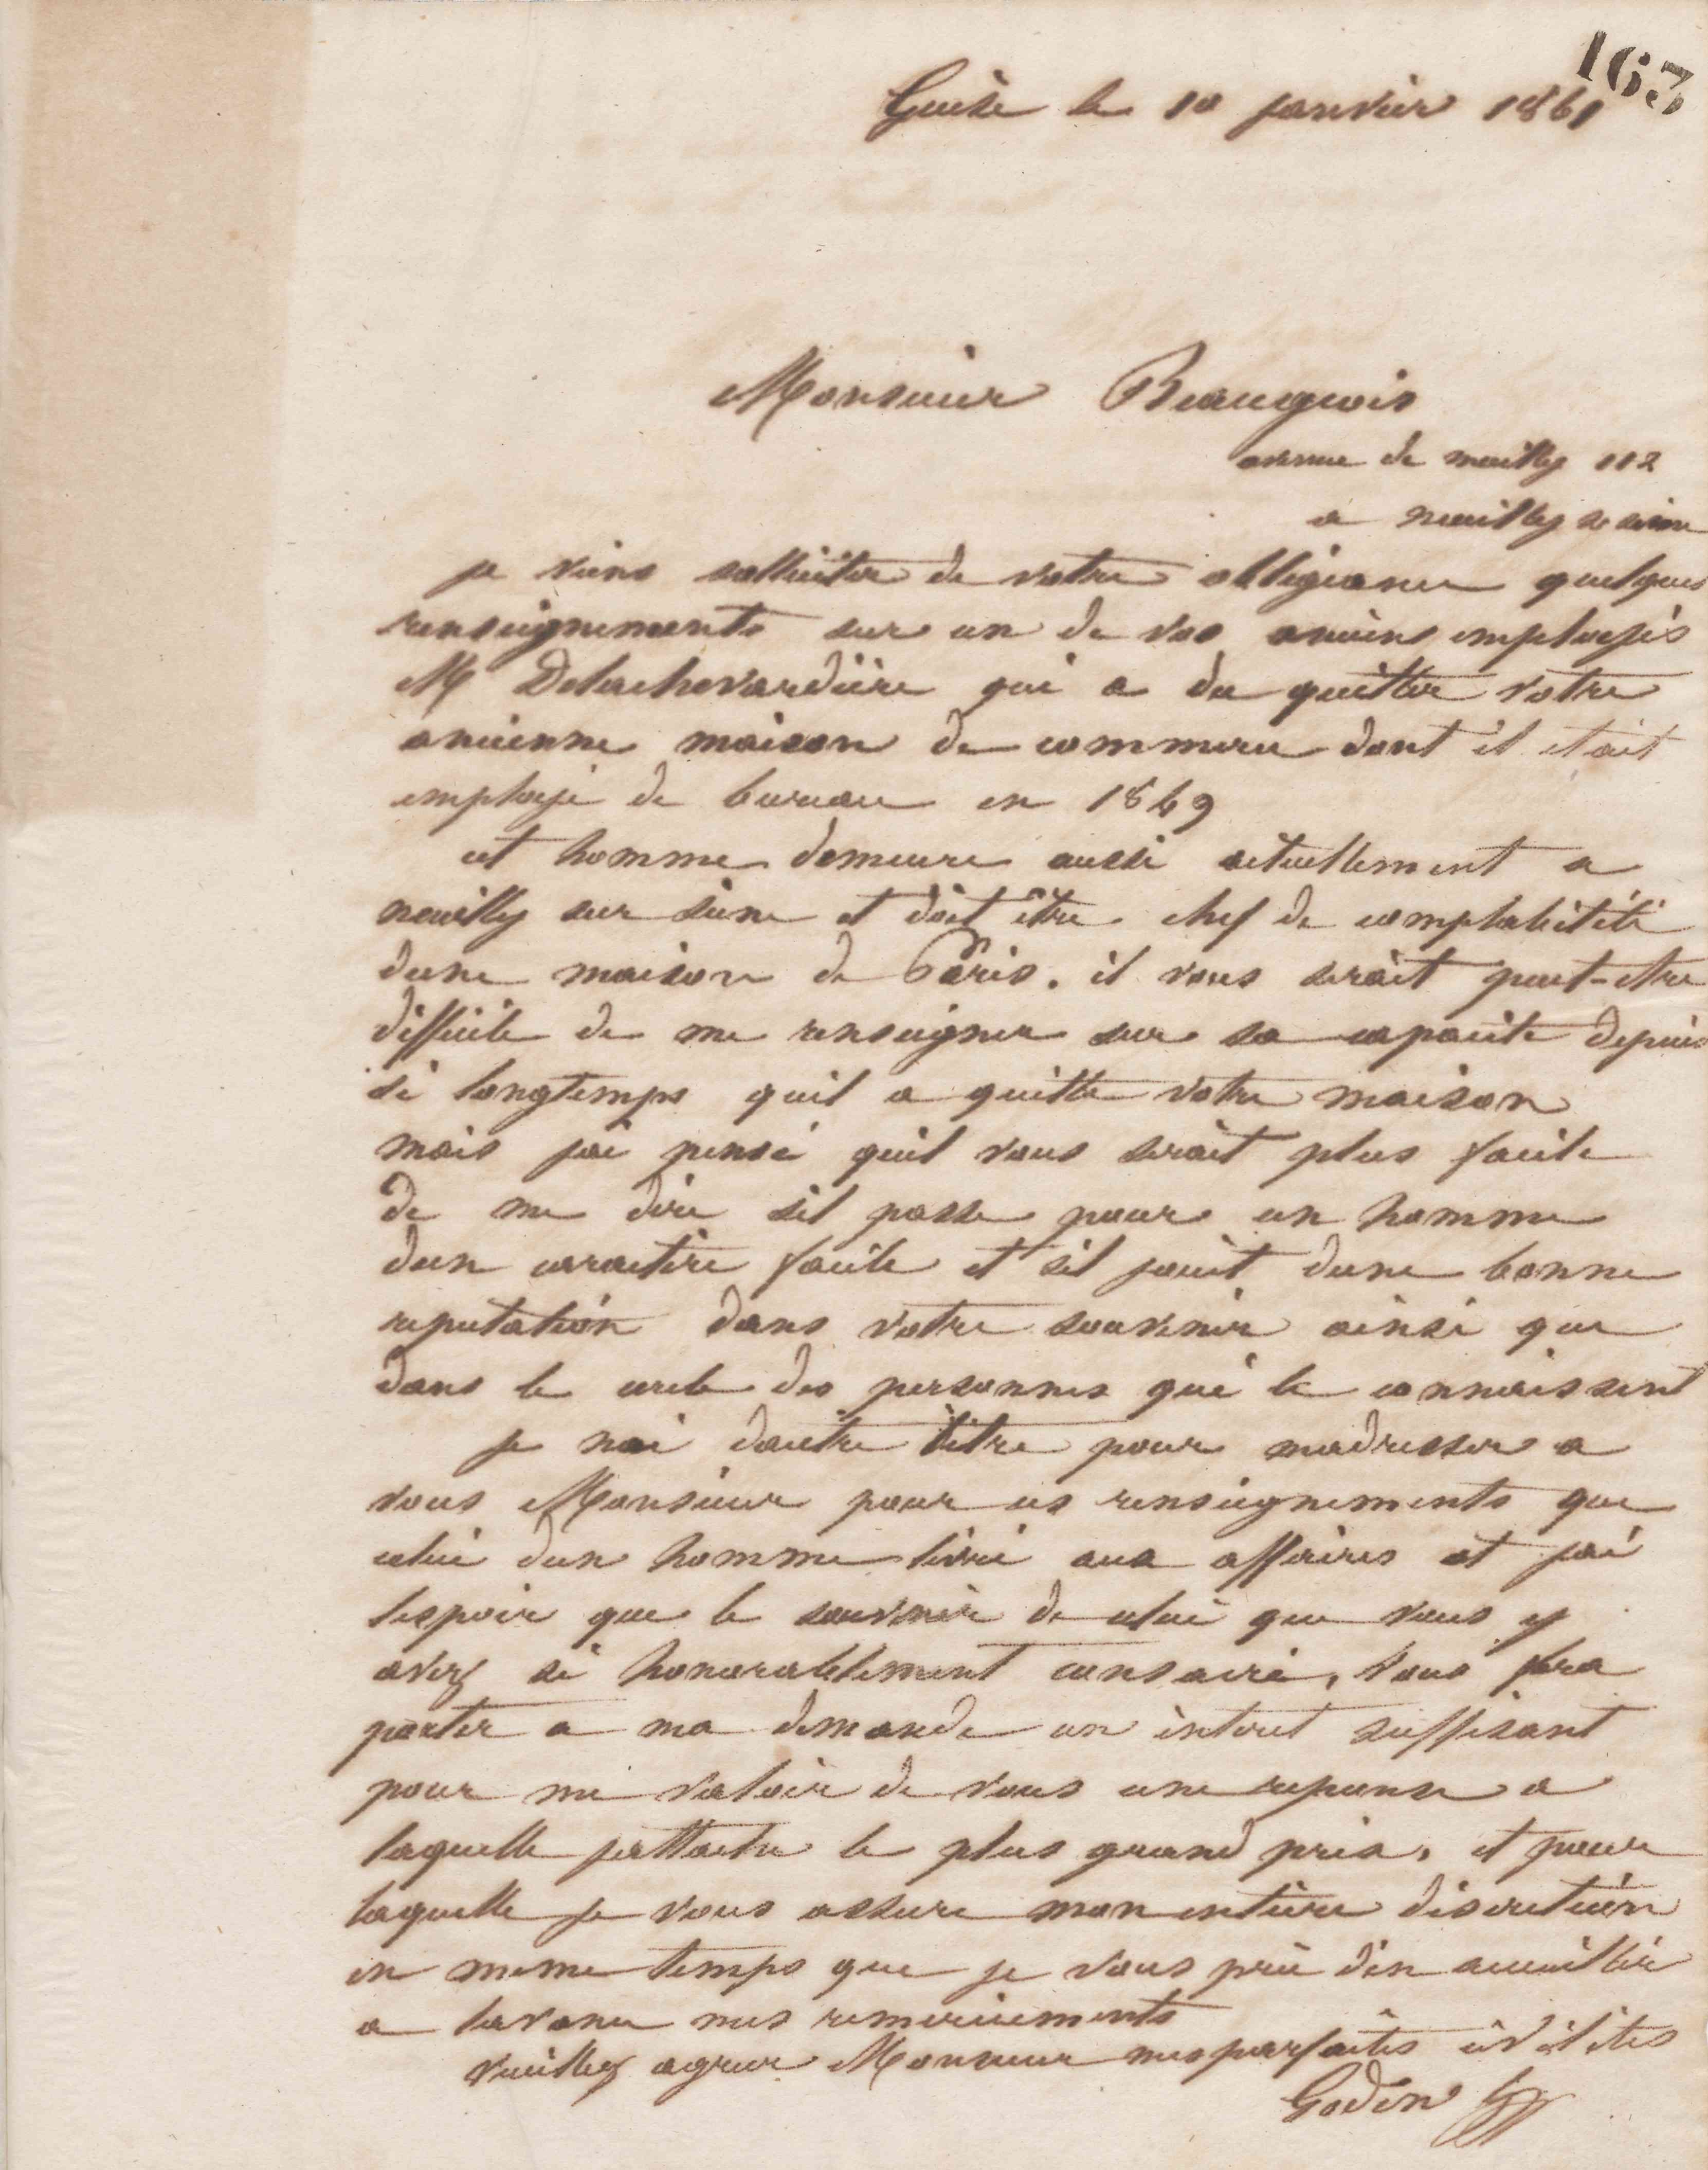 163
Guise le 10 janvier 1861
Monsieur Beaugeois
avenue de neuilly 112
a neuilly s seine
je viens solliciter de votre obligeance quelques
renseignements sur un de vos anciens employés
Mr Delachevardière qui a du quitter votre
ancienne maison de commerce dont il était
employé de bureau en 1849
cet homme demeure aussi actuellement a
neuilly sur seine et doit être chef de comptabilité
dune maison de Paris. il vous serait peut-etre
difficile de me renseigner sur sa capacité depuis
si longtemps quil a quitté votre maison
mais jai pensé quil vous serait plus facile
de me dire sil passe pour un homme
dun caractère facile et sil jouit dune bonne
reputation dans votre souvenir ainsi que
dans le cercle des personnes qui le connaissent
je nai dautre titre pour madresser a
vous Monsieur pour ces renseignements que
celui dun homme livré aux affaires et jai
lespoir que le souvenir de celui que vous y
avez si honorablement consacré, vous fera
porter a ma demande un intéret suffisant
pour me valoir de vous une reponse a
laquelle jattache le plus grand prix, et pour
laquelle je vous assure mon entière discrétion
en meme temps que je vous prie den accueillir
a lavance mes remerciements
veuillez agreer Monsieur mes parfaites civilités
Godin